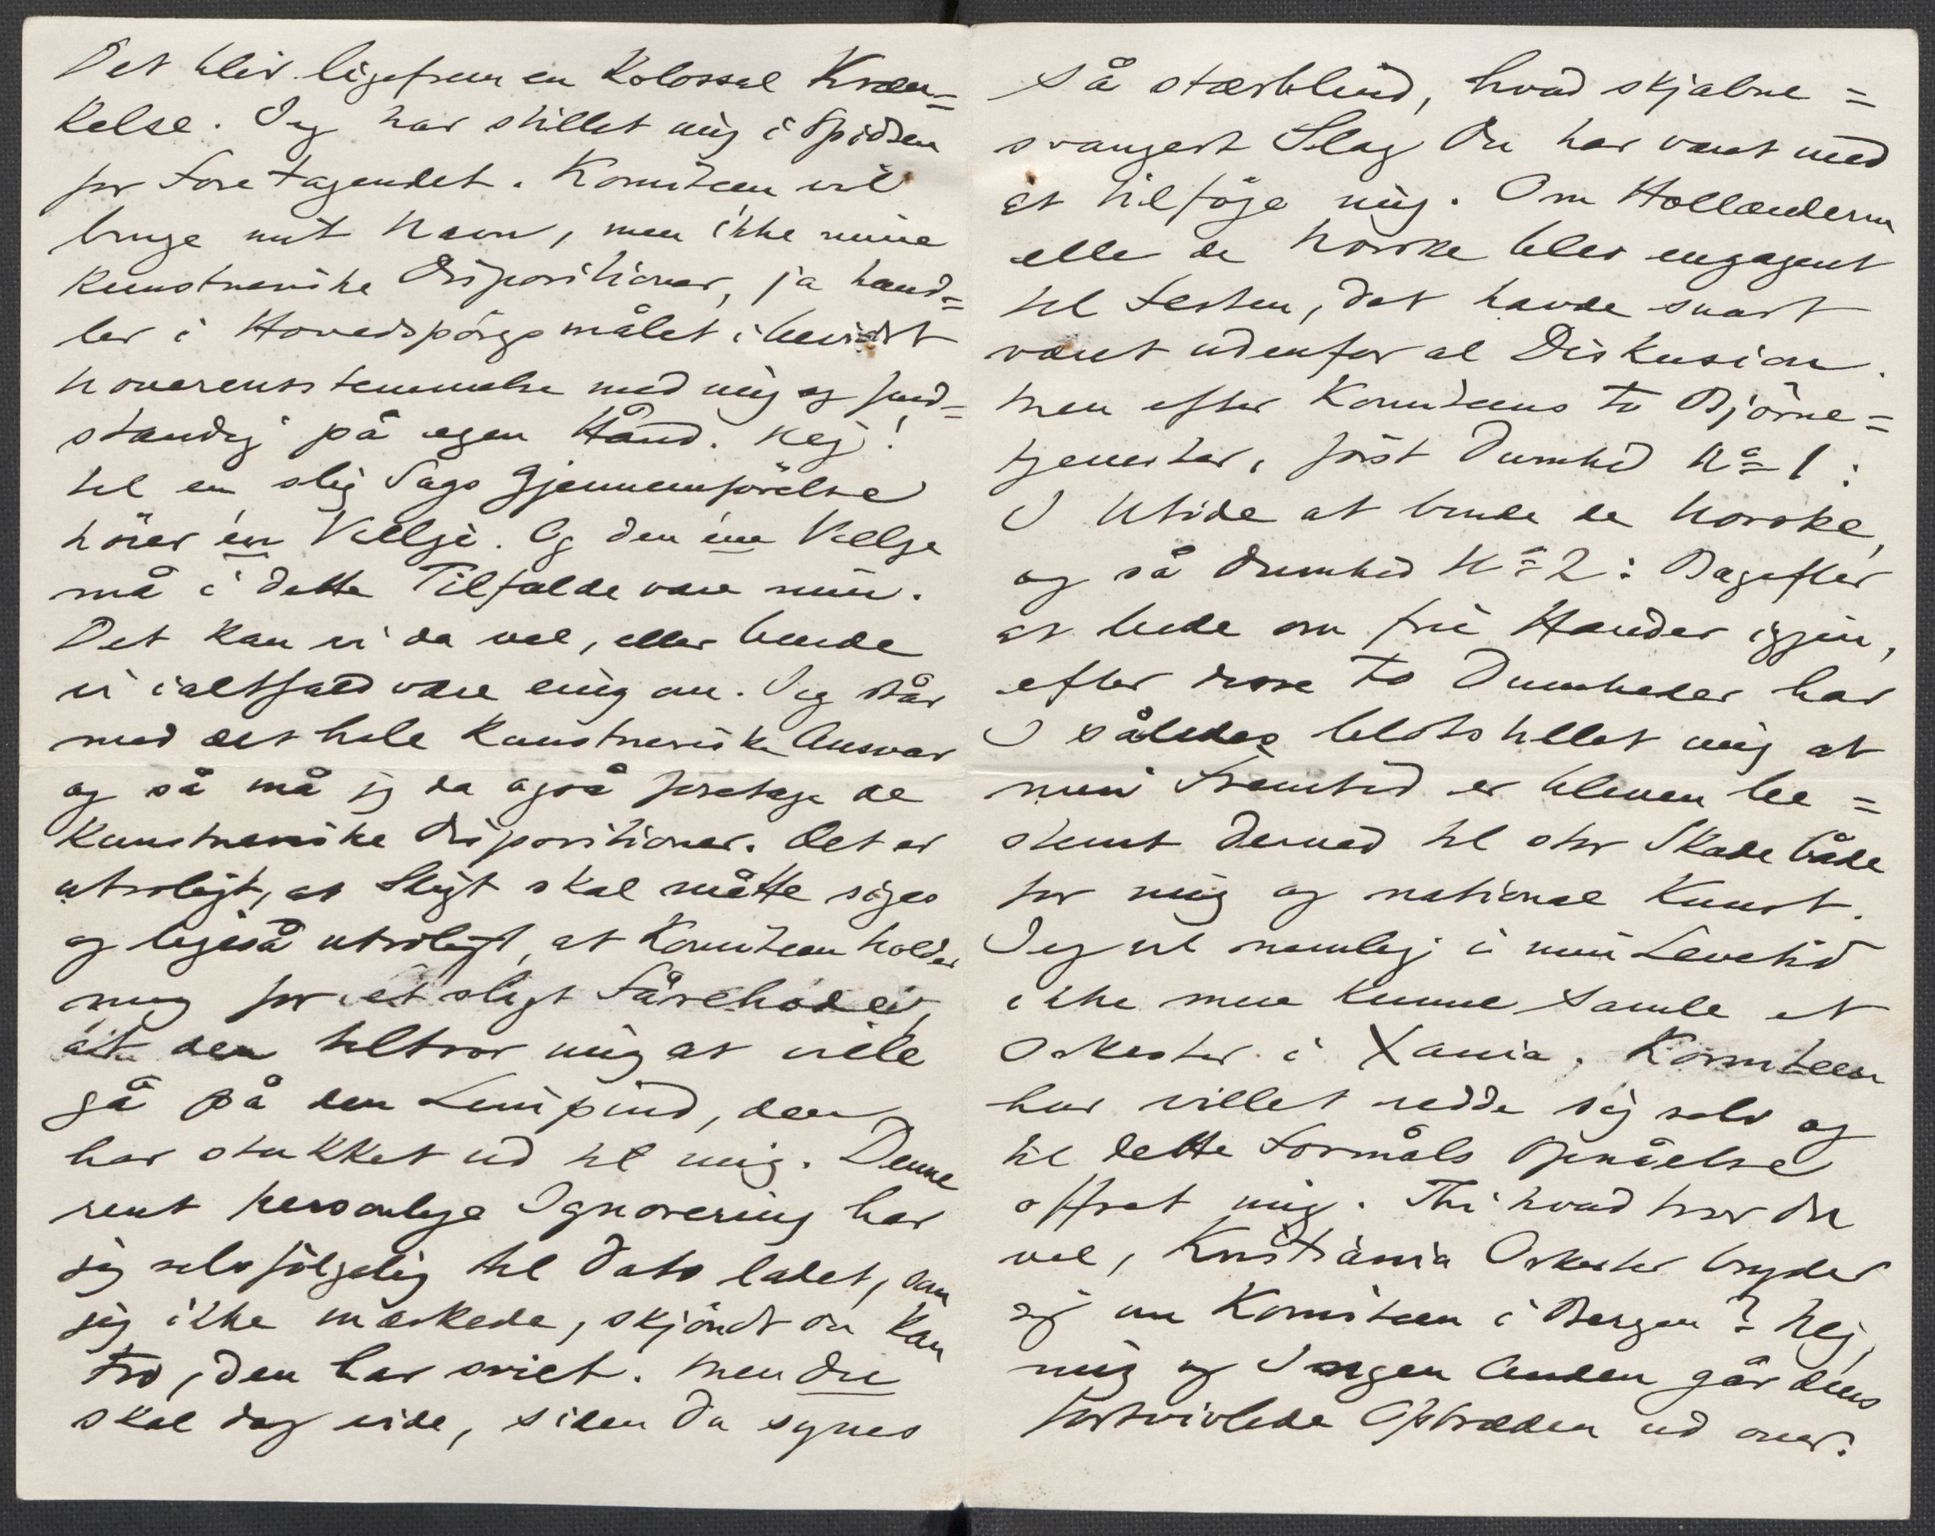 Det blir ligefrem en Kolossal Kræn=
kelse. Jeg har stillet mig i Spidsen
for Foretagendet. Komiteen vil
bruge mit Navn, men ikke mine
kunstneriske Dispositioner, ja hand=
ler i Hovedspörgsmålet i bevidst
Uoverensstemmelse med mig og
på egen Hånd. Nej!
til en slig Sags Gjennemförelse
hörer én Vilje. Og den éne Vilje
må i dette Tilfælde være min.
Det kan vi da vel, eller burde
vi ialtfald være enig om. Jeg står
med det hele kunstneriske Ansvar
og så må jeg da også foretage de
kunstneriske Dispositioner. Det er
utroligt, at Sligt skal måtte siges
og ligeså utroligt, at Komiteen holder
mig for et sligt Fårehoded,
at den tiltror mig at ville
gå på den Limpind, den
har stukket ud til mig. Denne
rent personlige Ignorering har
jeg selvfölgelig til Dato ladet, som
jeg ikke mærkede, skjöndt du kan
tro, den har sviet. Men du
skal dog vide, siden du synes
så stærblind, hvad skjæbne=
svangert Slag Du har været med
at tilföje mig. Om Hollænderne
eller de Norske blev engageret
til Festen, det havde snart
været udenfor al Diskusion.
Men efter Komiteens to Björne=
tjenester, först Dumhed No 1:
I Utide at binde de Norske,
og så Dumhed No 2: Bagefter
at bede om frie Hænder igjen,
efter disse to Dumheder har
I således blotstillet mig at
min Fremtid er bleven be=
stemt derved til stor Skade både
for mig og national Kunst.
Jeg vil nemlig i min Levetid
ikke mere kunne samle et
Orkester i Xania. Komiteen
har villet redde sig selv og
til dette Formåls Opnåelse
offret mig. Thi hvad tror du
vel, Kristiania Orkester bryder
sig om Komiteen i Bergen? Nej,
mig og Ingen Anden går dens
fortvivlede Optræden ud over.